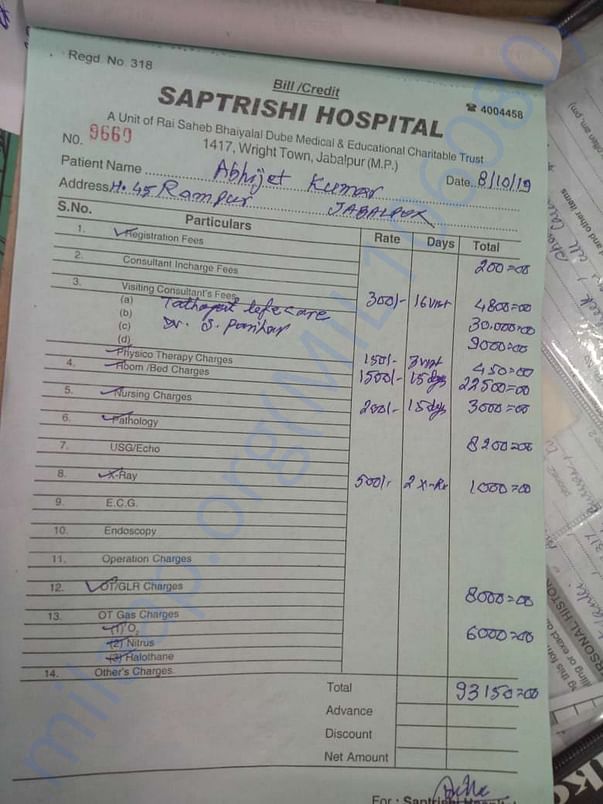 Regd. No. 318
Bill /Credit
☎ 4004458
SAPTRISHI HOSPITAL
A Unit of Rai Saheb Bhaiyalal Dube Medical & Educational Charitable Trust
1417, Wright Town, Jabalpur (M.P.)
NO. 9660
Patient Name Abhijet Kumar Date. 8/10/19
Address H. 45 Rampur JABALPUR
S.No. Particulars Rate Days Total
1. Registration Fees 200=00
2. Consultant Incharge Fees
3. Visiting Consultant's Fees 300/- 16 Visit 4800=00
(a) lifecare 30.000=00
(b) Dr. S. Parihar 9000=00
(c)
(d)
Physico Therapy Charges 150/- 3 visit 450=00
4. Room /Bed Charges 1500/- 15 days 22500=00
5. Nursing Charges 200/- 15 days 3000=00
6. Pathology 8200=00
7. USG/Echo
8. X-Ray 500/- 2 X-Ra 1000=00
9. E.C.G.
10. Endoscopy
11. Operation Charges
12. OT/GLR Charges 8000=00
13. OT Gas Charges 6000=00
(1) O2
(2) Nitrus
(3) Halothane
14. Other's Charges
Total 93150=00
Advance
Discount
Net Amount
For : Saptrishi
milaap.org(MIL106030